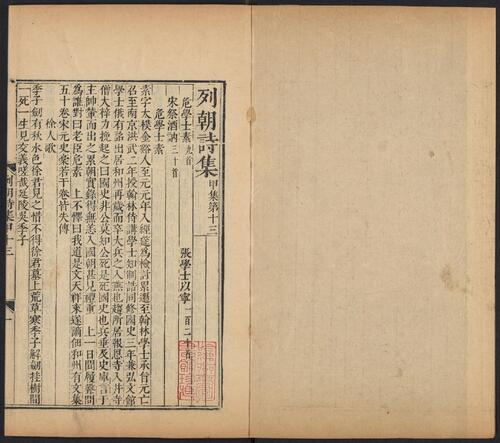 列朝詩集 甲集第十三
危學士素 九首
張學士以寧 一百二十五首
宋祭酒訥 三十首
危學士素
素字太樸金谿人至元元年人經筵爲檢討累遷至翰林學士承旨元亡
召至南京洪武二年授翰林侍講學士知制誥同修國史三年兼弘文館
學士俄有詔出居和州再歲而卒大兵之入燕也趨所居報恩寺入井寺
僧大梓力挽起之曰國史非公莫知公死是死國史也兵垂及史庫言于
主帥輦而出之累朝實錄得無恙入國朝甚見禮重 上一日聞履聲問
爲誰對曰老臣危素 上不懌曰我道是文天祥來遂謫佃和州有文集
五十卷宋元史稾若干卷皆失傳
徐人歌
季子劍有秋水色徐君見之惜不得徐君墓上荒草寒季子解劍挂樹間
一死一生見交義嗟哉延陵吳季子
列朝詩集甲十三
一